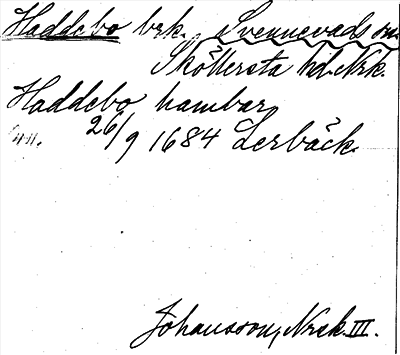 Haddebo brk. Svennevads sn.
Sköllersta hd. Nrk.
Haddebo hambar
26/9 1684 Lerbäck.
Johansson, Nrek. III.